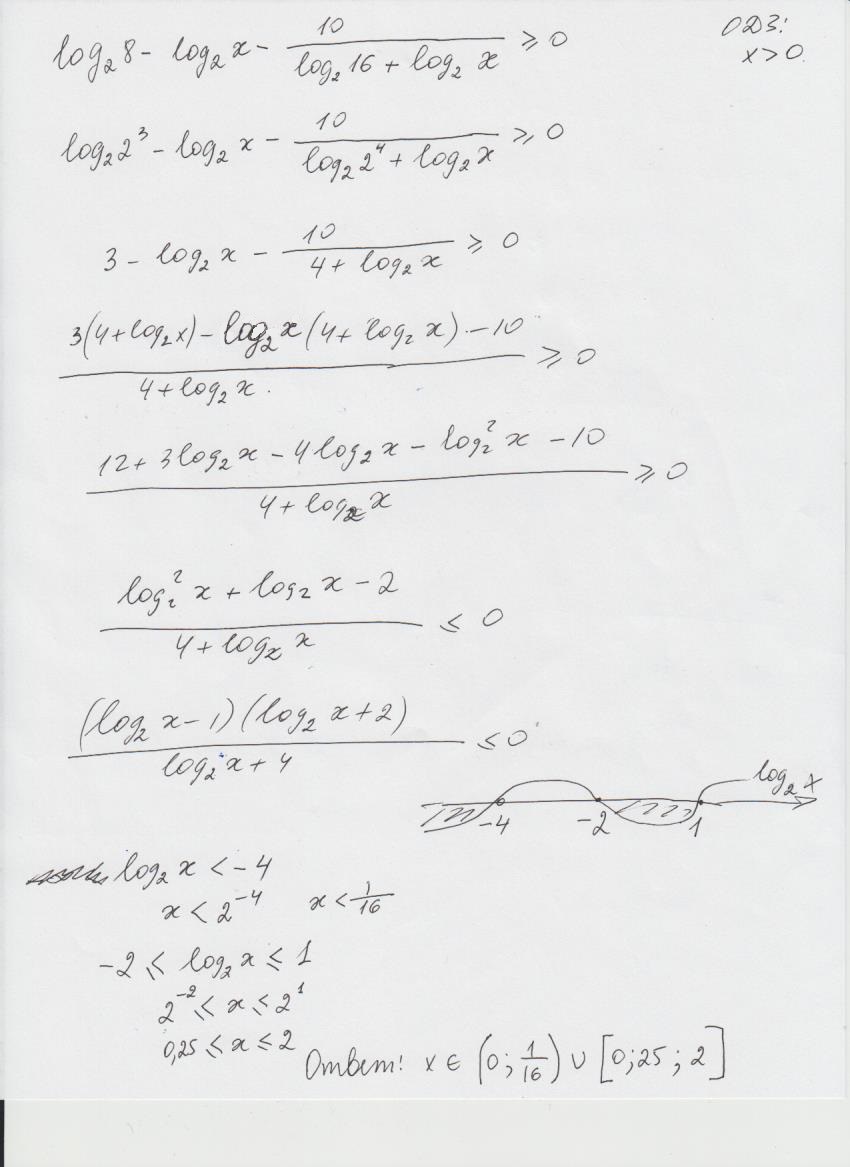 log₂8 - log₂x - 10/(log₂16 + log₂x) ⩾ 0
ОДЗ:
x > 0.
log₂2³ - log₂x - 10/(log₂2⁴ + log₂x) ⩾ 0
3 - log₂x - 10/(4 + log₂x) ⩾ 0
(3(4 + log₂x) - log₂x(4 + log₂x) - 10)/(4 + log₂x) ⩾ 0
(12 + 3log₂x - 4log₂x - log₂²x - 10)/(4 + log₂x) ⩾ 0
(log₂²x + log₂x - 2)/(4 + log₂x) ⩽ 0
((log₂x - 1)(log₂x + 2))/(log₂x + 4) ⩽ 0
log₂x
-4 -2 1
log₂x < -4
x < 2⁻⁴ x < 1/16
-2 ⩽ log₂x ⩽ 1
2⁻² ⩽ x ⩽ 2¹
0,25 ⩽ x ⩽ 2
Ответ: x ∈ (0; 1/16) ∪ [0;25; 2]